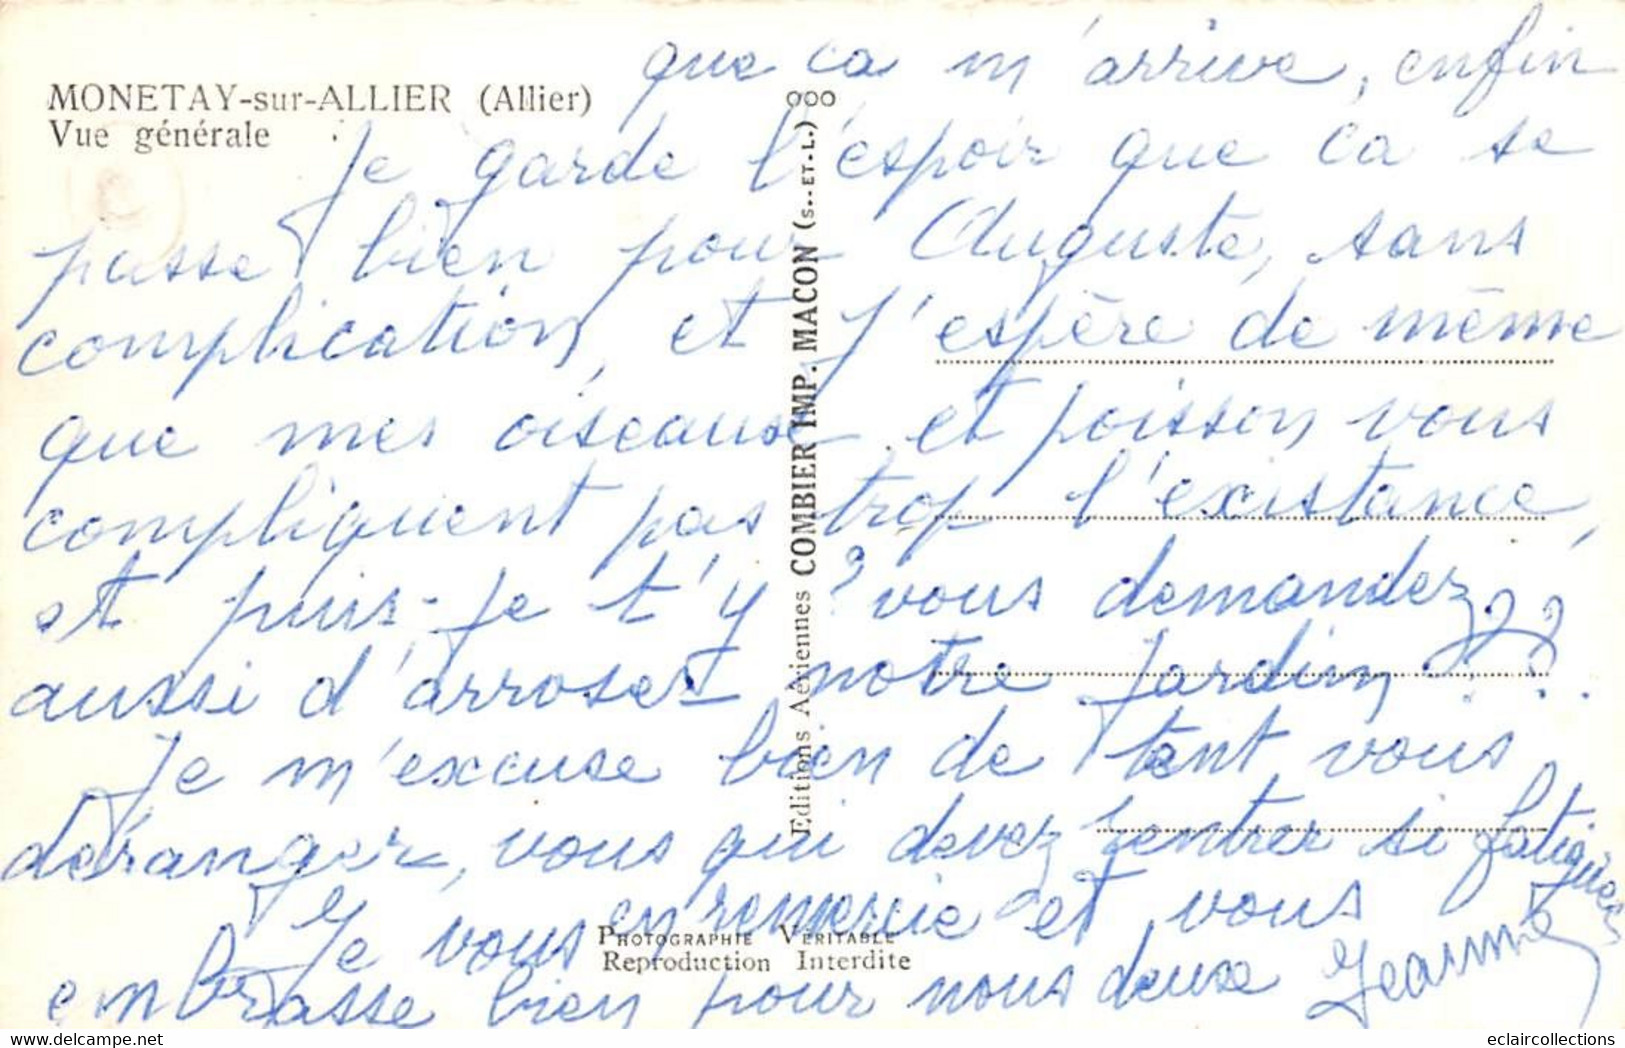 MONETAY-sur-ALLIER (Allier)
Vue générale
que ca m'arrive, enfin
Je garde l'espoir que ca se
passe bien pour Auguste, sans
complication, et j'espère de même
que mes oiseaux et poisson vous
compliquent pas trop l'existance,
et puis-je t'y ? vous demandez
aussi d'arroser notre jardin ???
Je m'excuse bien de tent vous
déranger, vous qui devez rentrer si fatiguée
Je vous en remercie et vous
embrasse bien pour nous deux Jeanne
Editions Aériennes COMBIER IMP. MACON (S.-ET-L.) OOO
PHOTOGRAPHIE VÉRITABLE
Reproduction Interdite
eclaircollections